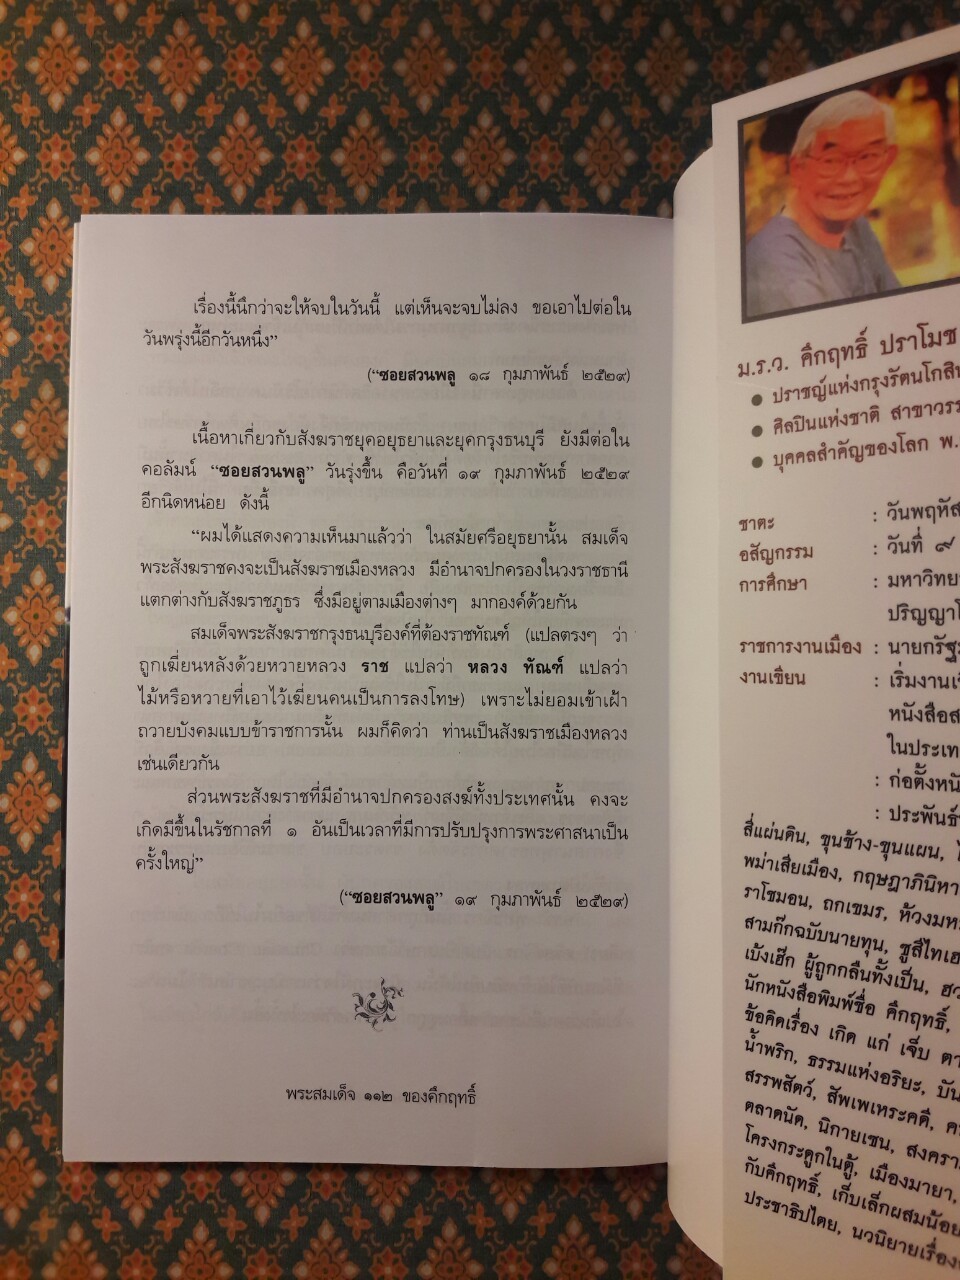 เรื่องนี้นึกว่าจะให้จบในวันนี้ แต่เห็นจะจบไม่ลง ขอเอาไปต่อใน
วันพรุ่งนี้อีกวันหนึ่ง”
(“ซอยสวนพลู ๑๘ กุมภาพันธ์ ๒๕๒๙)
เนื้อหาเกี่ยวกับสังฆราชยุคอยุธยาและยุคกรุงธนบุรี ยังมีต่อใน
คอลัมน์ “ซอยสวนพลู” วันรุ่งขึ้น คือวันที่ ๑๙ กุมภาพันธ์ ๒๕๒๙
อีกนิดหน่อย ดังนี้
“ผมได้แสดงความเห็นมาแล้วว่า ในสมัยศรีอยุธยานั้น สมเด็จ
พระสังฆราชคงจะเป็นสังฆราชเมืองหลวง มีอำนาจปกครองในวงราชธานี
แตกต่างกับสังฆราชภูธร ซึ่งมีอยู่ตามเมืองต่างๆ มากองค์ด้วยกัน
สมเด็จพระสังฆราชกรุงธนบุรีองค์ที่ต้องราชทัณฑ์ (แปลตรงๆ ว่า
ถูกเฆี่ยนหลังด้วยหวายหลวง ราช แปลว่า หลวง ทัณฑ์ แปลว่า
ไม้หรือหวายที่เอาไว้เฆี่ยนคนเป็นการลงโทษ) เพราะไม่ยอมเข้าเฝ้า
ถวายบังคมแบบข้าราชการนั้น ผมก็คิดว่า ท่านเป็นสังฆราชเมืองหลวง
เช่นเดียวกัน
ส่วนพระสังฆราชที่มีอำนาจปกครองสงฆ์ทั้งประเทศนั้น คงจะ
เกิดมีขึ้นในรัชกาลที่ ๑ อันเป็นเวลาที่มีการปรับปรุงการพระศาสนาเป็น
ครั้งใหญ่”
(“ซอยสวนพลู” ๑๙ กุมภาพันธ์ ๒๕๒๙)
พระสมเด็จ ๑๑๒ ของคึกฤทธิ์
ม.ร.ว. คึกฤทธิ์ ปราโมช
● ปราชญ์แห่งกรุงรัตนโกสิน
● ศิลปินแห่งชาติ สาขาวรร
● บุคคลสำคัญของโลก พ.
ชาตะ : วันพฤหัส
อสัญกรรม : วันที่ ๙
การศึกษา : มหาวิทย
ปริญญาโ
ราชการงานเมือง : นายกรัฐ
งานเขียน : เริ่มงานเ
หนังสือส
ในประเท
: ก่อตั้งหน
: ประพันธ์
สี่แผ่นดิน, ขุนช้าง-ขุนแผน,
พม่าเสียเมือง, กฤษฎาภินิหา
ราโชมอน, ถกเขมร, ห้วงมห
สามก๊กฉบับนายทุน, ซูสีไทเฮ
เบ้งเฮ็ก ผู้ถูกกลืนทั้งเป็น, ฮว
นักหนังสือพิมพ์ชื่อ คึกฤทธิ์,
ข้อคิดเรื่อง เกิด แก่ เจ็บ ตา
น้ำพริก, ธรรมแห่งอริยะ, บัน
สรรพสัตว์, สัพเพเหระคดี,
ตลาดนัด, นิกายเซน, สงครา
โครงกระดูกในตู้, เมืองมายา,
กับคึกฤทธิ์, เก็บเล็กผสมน้อย
ประชาธิปไตย, นวนิยายเรื่อง